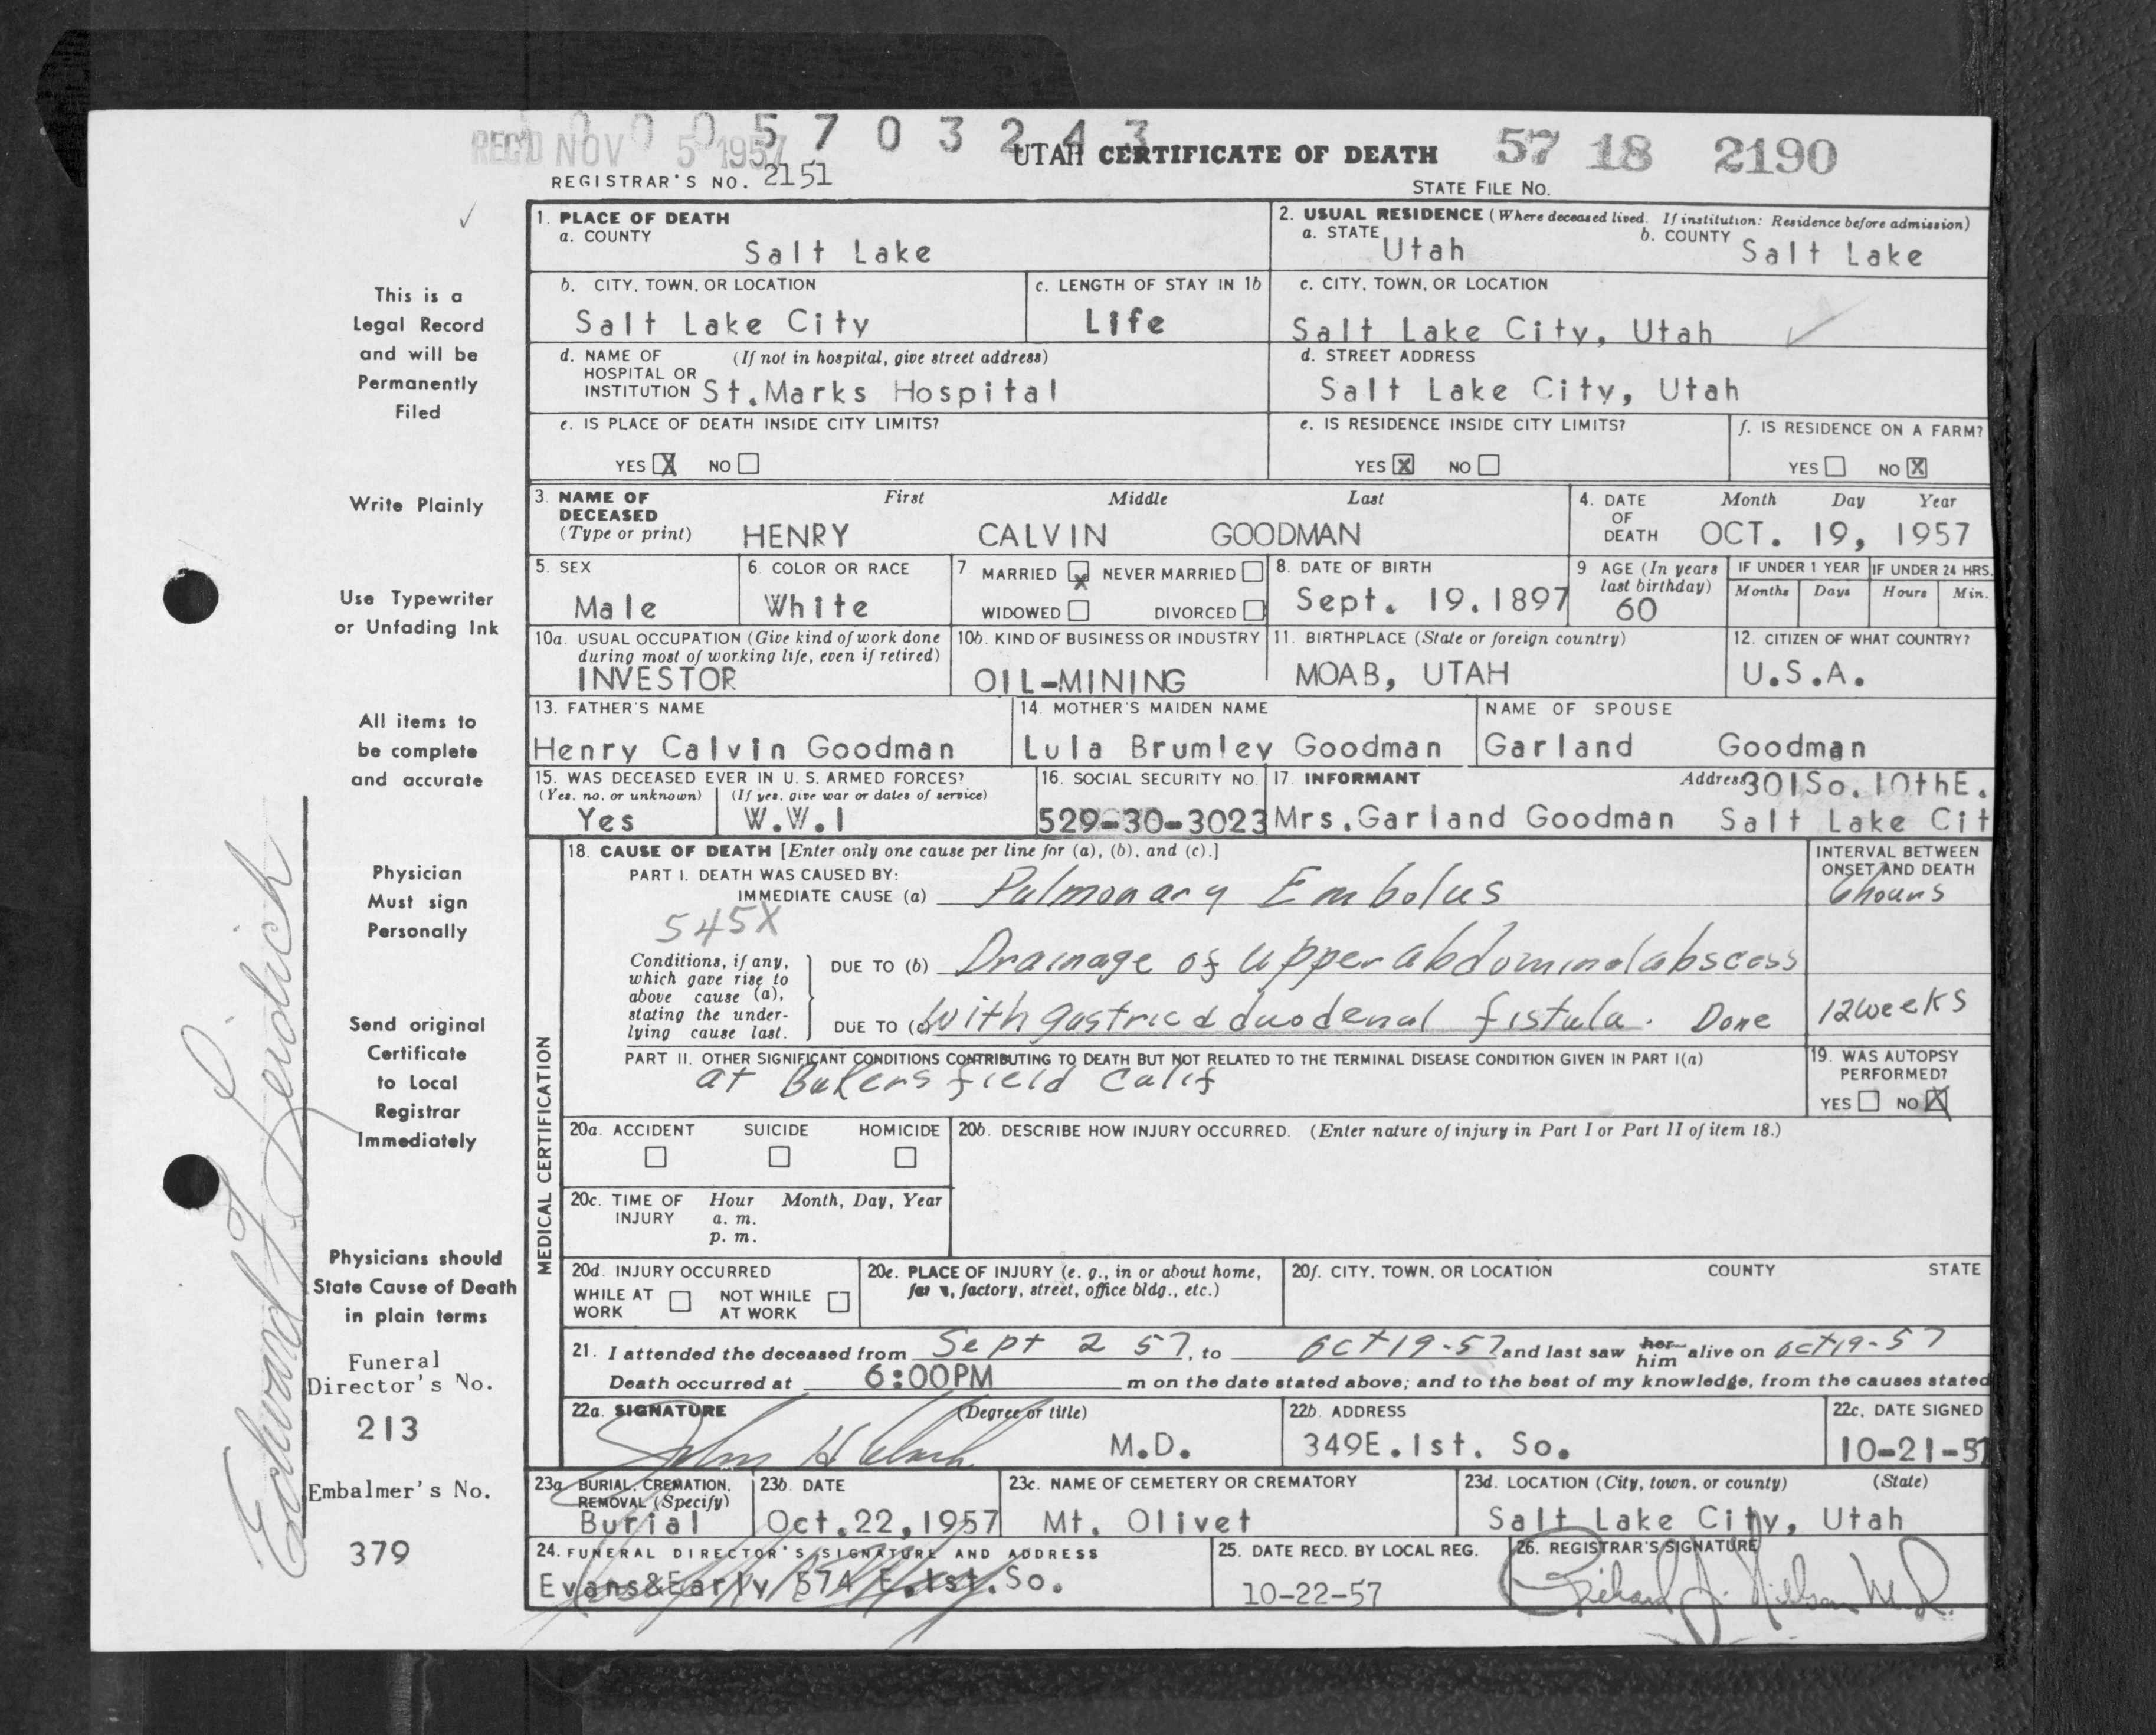 0 0 0 5 7 0 3 2 4 3
REC'D NOV 5 1957
UTAH CERTIFICATE OF DEATH
57 18 2190
REGISTRAR'S NO. 2151
STATE FILE NO.
1. PLACE OF DEATH
a. COUNTY
Salt Lake
2. USUAL RESIDENCE (Where deceased lived. If institution: Residence before admission)
a. STATE Utah b. COUNTY Salt Lake
b. CITY, TOWN, OR LOCATION
Salt Lake City
c. LENGTH OF STAY IN 1b
Life
c. CITY, TOWN, OR LOCATION
Salt Lake City, Utah
d. NAME OF (If not in hospital, give street address)
HOSPITAL OR
INSTITUTION St. Marks Hospital
d. STREET ADDRESS
Salt Lake City, Utah
e. IS PLACE OF DEATH INSIDE CITY LIMITS?
YES X NO
e. IS RESIDENCE INSIDE CITY LIMITS?
YES X NO
f. IS RESIDENCE ON A FARM?
YES NO X
3. NAME OF DECEASED
(Type or print)
First Middle Last
HENRY CALVIN GOODMAN
4. DATE OF DEATH
Month Day Year
OCT. 19, 1957
5. SEX
Male
6. COLOR OR RACE
White
7 MARRIED X NEVER MARRIED
WIDOWED DIVORCED
8. DATE OF BIRTH
Sept. 19.1897
9 AGE (In years
last birthday)
60
IF UNDER 1 YEAR
Months Days
IF UNDER 24 HRS.
Hours Min.
10a. USUAL OCCUPATION (Give kind of work done
during most of working life, even if retired)
INVESTOR
10b. KIND OF BUSINESS OR INDUSTRY
OIL-MINING
11. BIRTHPLACE (State or foreign country)
MOAB, UTAH
12. CITIZEN OF WHAT COUNTRY?
U.S.A.
13. FATHER'S NAME
Henry Calvin Goodman
14. MOTHER'S MAIDEN NAME
Lula Brumley Goodman
NAME OF SPOUSE
Garland Goodman
15. WAS DECEASED EVER IN U. S. ARMED FORCES?
(Yes, no, or unknown) (If yes, give war or dates of service)
Yes W.W.I
16. SOCIAL SECURITY NO.
529-30-3023
17. INFORMANT Address 301So. 10thE.
Mrs.Garland Goodman Salt Lake Cit
MEDICAL CERTIFICATION
18. CAUSE OF DEATH [Enter only one cause per line for (a), (b), and (c).]
PART I. DEATH WAS CAUSED BY:
IMMEDIATE CAUSE (a) Pulmonary Embolus
545X
Conditions, if any,
which gave rise to
above cause (a),
stating the under-
lying cause last.
DUE TO (b) Drainage of upper abdominal abscess
DUE TO (c) With gastric & duodenal fistula. Done
INTERVAL BETWEEN
ONSET AND DEATH
6 hours
12 weeks
PART II. OTHER SIGNIFICANT CONDITIONS CONTRIBUTING TO DEATH BUT NOT RELATED TO THE TERMINAL DISEASE CONDITION GIVEN IN PART I(a)
at Bakersfield Calif
19. WAS AUTOPSY
PERFORMED?
YES NO X
20a. ACCIDENT SUICIDE HOMICIDE
20b. DESCRIBE HOW INJURY OCCURRED. (Enter nature of injury in Part I or Part II of item 18.)
20c. TIME OF Hour Month, Day, Year
INJURY a. m.
p. m.
20d. INJURY OCCURRED
WHILE AT WORK NOT WHILE AT WORK
20e. PLACE OF INJURY (e. g., in or about home,
farm, factory, street, office bldg., etc.)
20f. CITY, TOWN, OR LOCATION COUNTY STATE
21. I attended the deceased from Sept 2 57, to Oct 19-57 and last saw her him alive on Oct 19-57
Death occurred at 6:00PM m on the date stated above; and to the best of my knowledge, from the causes stated
22a. SIGNATURE (Degree or title)
M.D.
22b. ADDRESS
349E.1st. So.
22c. DATE SIGNED
10-21-57
23a BURIAL, CREMATION,
REMOVAL (Specify)
Burial
23b. DATE
Oct.22,1957
23c. NAME OF CEMETERY OR CREMATORY
Mt. Olivet
23d. LOCATION (City, town, or county) (State)
Salt Lake City, Utah
24. FUNERAL DIRECTOR'S SIGNATURE AND ADDRESS
Evans&Early 574 E.1st.So.
25. DATE RECD. BY LOCAL REG.
10-22-57
26. REGISTRAR'S SIGNATURE
This is a
Legal Record
and will be
Permanently
Filed
Write Plainly
Use Typewriter
or Unfading Ink
All items to
be complete
and accurate
Physician
Must sign
Personally
Send original
Certificate
to Local
Registrar
Immediately
Physicians should
State Cause of Death
in plain terms
Funeral
Director's No.
213
Embalmer's No.
379
Edward